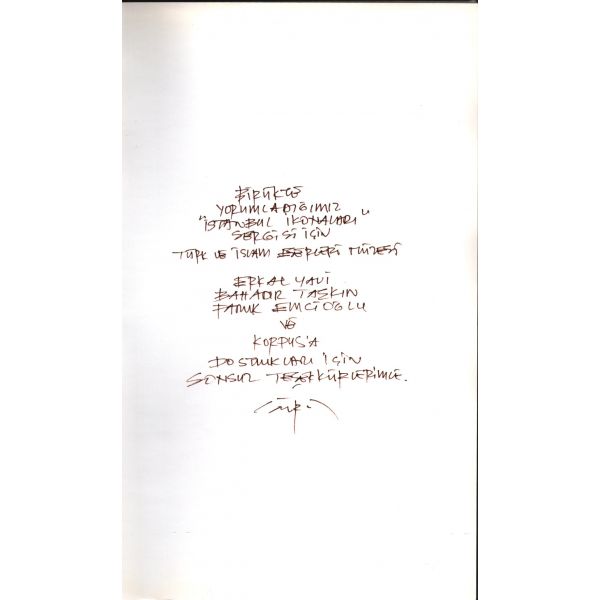 BİRLİKTE
YORUMLADIĞIMIZ
"İSTANBUL İKONALARI"
SERGİSİ İÇİN
TÜRK VE İSLAM ESERLERİ MÜZESİ
ERKAL YAVİ
BAHADIR TAŞKIN
FARUK EMCİOĞLU
VE
KORPUS'A
DOSTLUKLARI İÇİN
SONSUZ TEŞEKKÜRLERİMLE.